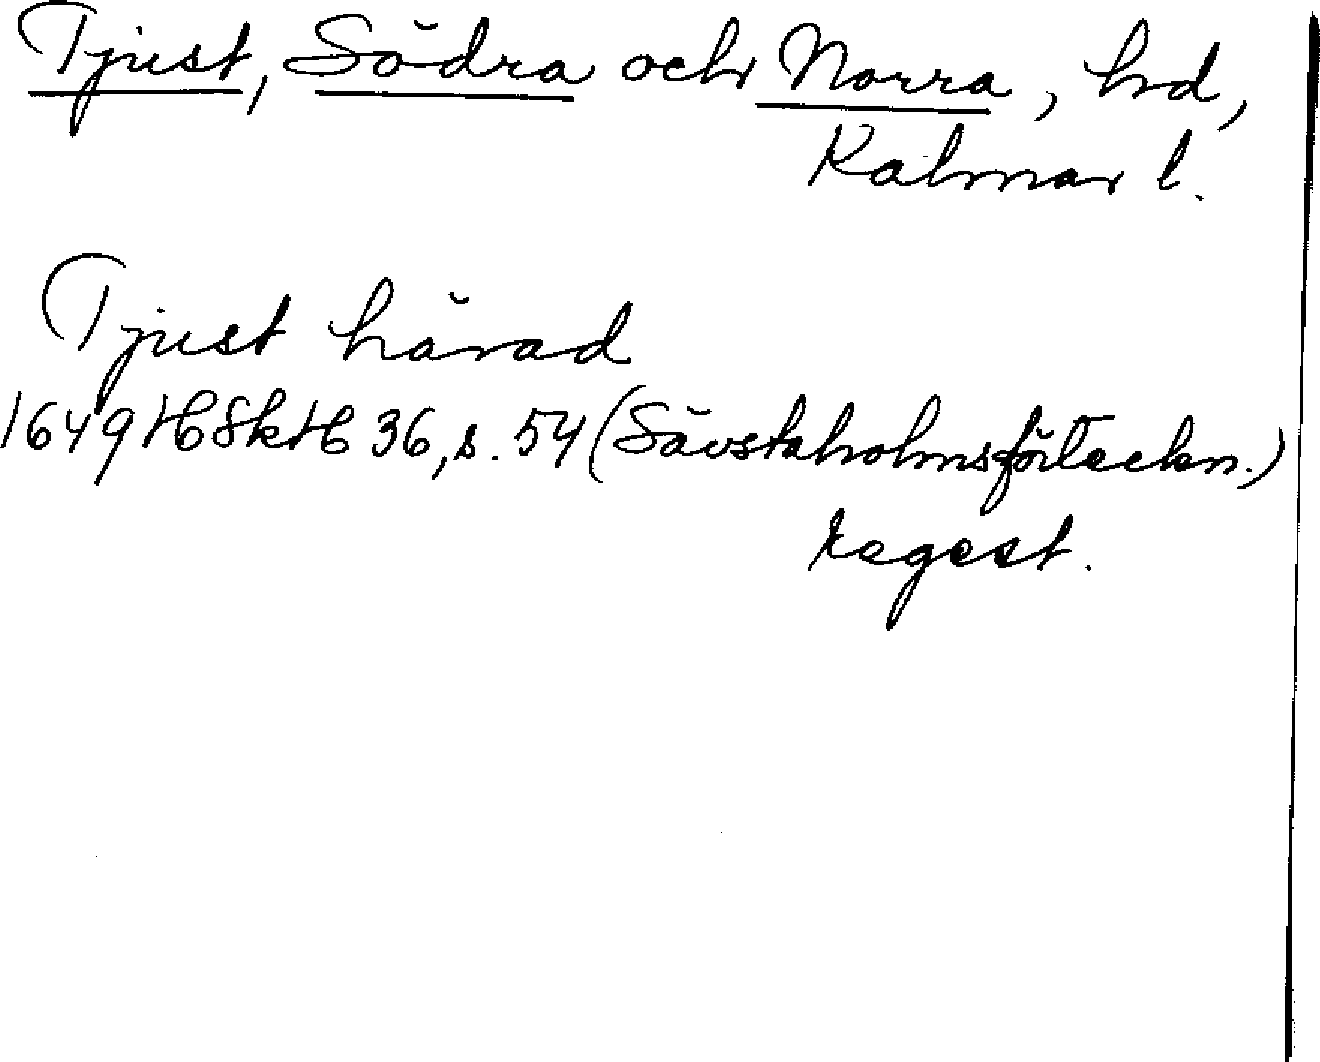 Tjust, Södra och Norra, hd,
Kalmar l.
Tjust härad
1649 HSkH 36, s. 54 (Sävstaholmsförteckn.)
regest.